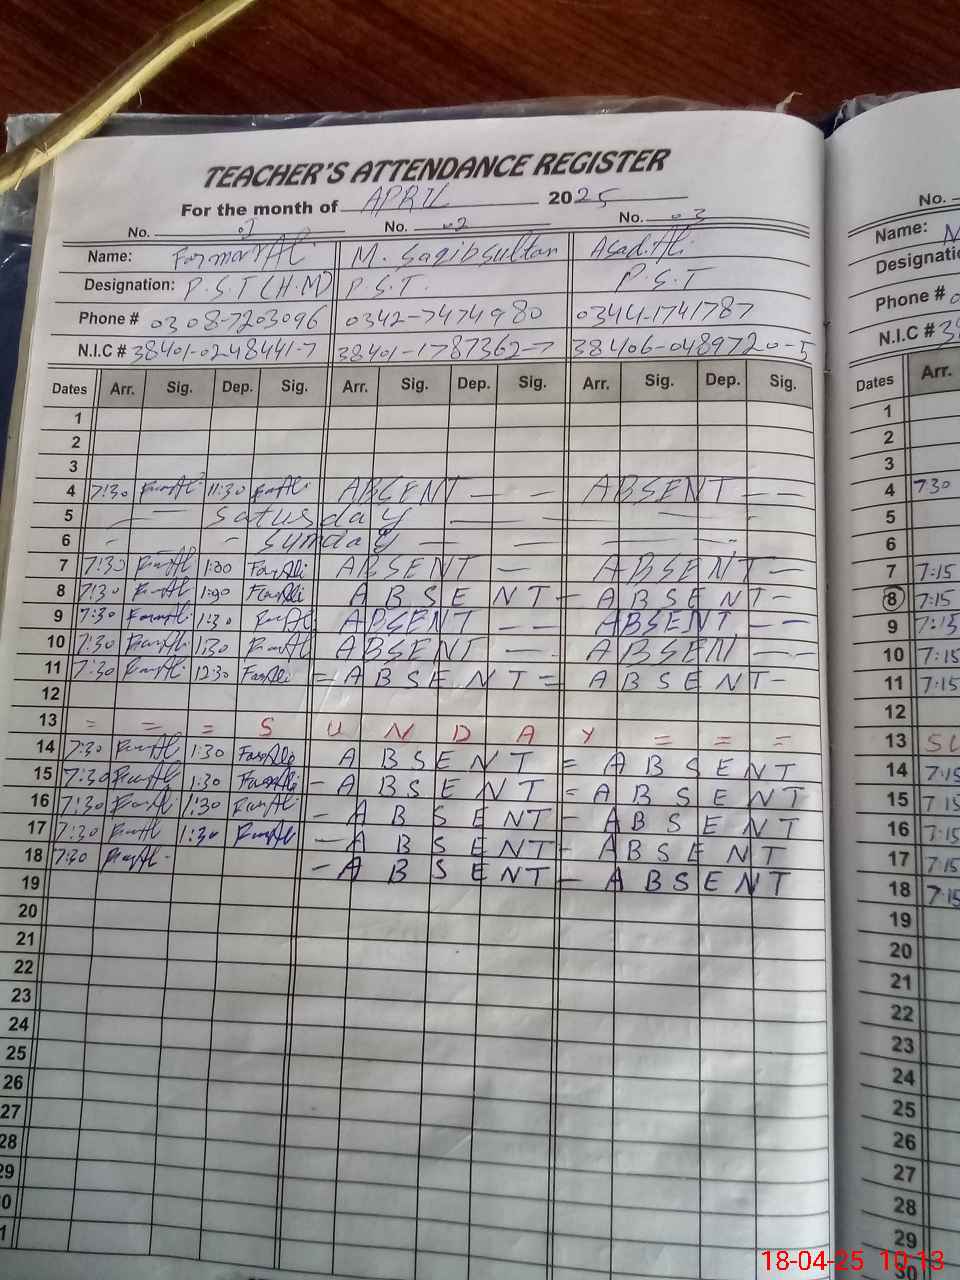 TEACHER'S ATTENDANCE REGISTER
For the month of APRIL 2025
No. 01 No. 02 No. 03
Name: Farman Ali M. Saqib Sultan Asad Ali
Designation: P.S.T (H.M) P.S.T. P.S.T
Phone # 0308-7203096 0342-7474980 0344-1741787
N.I.C # 38401-0248441-7 38401-1787362-7 38406-0489720-5
Dates Arr. Sig. Dep. Sig. Arr. Sig. Dep. Sig. Arr. Sig. Dep. Sig.
1
2
3
4 7:30 11:30 ABSENT — — ABSENT — —
5 — — Saturday — — — —
6 - - Sunday — — — —
7 7:30 1:00 ABSENT — ABSENT —
8 7:30 1:00 ABSENT - ABSENT -
9 7:30 1:30 ABSENT — — ABSENT — —
10 7:30 1:30 ABSENT — — ABSEN — —
11 7:30 12:30 = ABSENT = ABSENT -
12
13 = = = SUNDAY = = =
14 7:30 1:30 ABSENT = ABSENT
15 7:30 1:30 - ABSENT = ABSENT
16 7:30 1:30 - ABSENT - ABSENT
17 7:30 1:30 - ABSENT - ABSENT
18 7:30 - ABSENT - ABSENT
19
20
21
22
23
24
25
26
27
28
29
0
1
No.
Name:
Designatio
Phone #
N.I.C # 38
Dates Arr.
1
2
3
4 730
5
6
7 7:15
8 7:15
9 7:15
10 7:15
11 7:15
12
13 SU
14 7:15
15 7:15
16 7:15
17 7:15
18 7:15
19
20
21
22
23
24
25
26
27
28
29
30
18-04-25 10:13